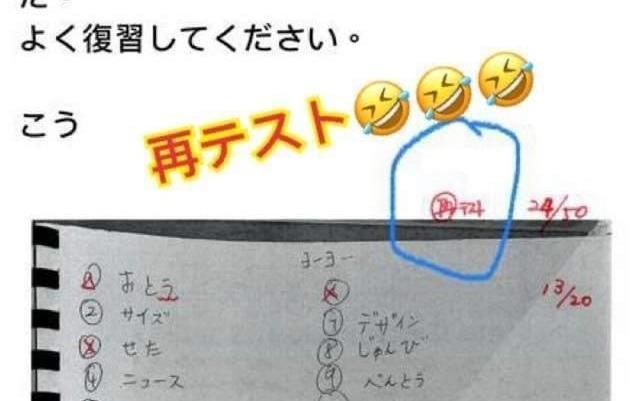 よく復習してください。
こう
再テスト
再テスト 24/50
ヨーヨー
13/20
① おとう
② サイズ
③ せた
④ ニュース
⑥
⑦ デザイン
⑧ じゅんび
⑨ べんとう